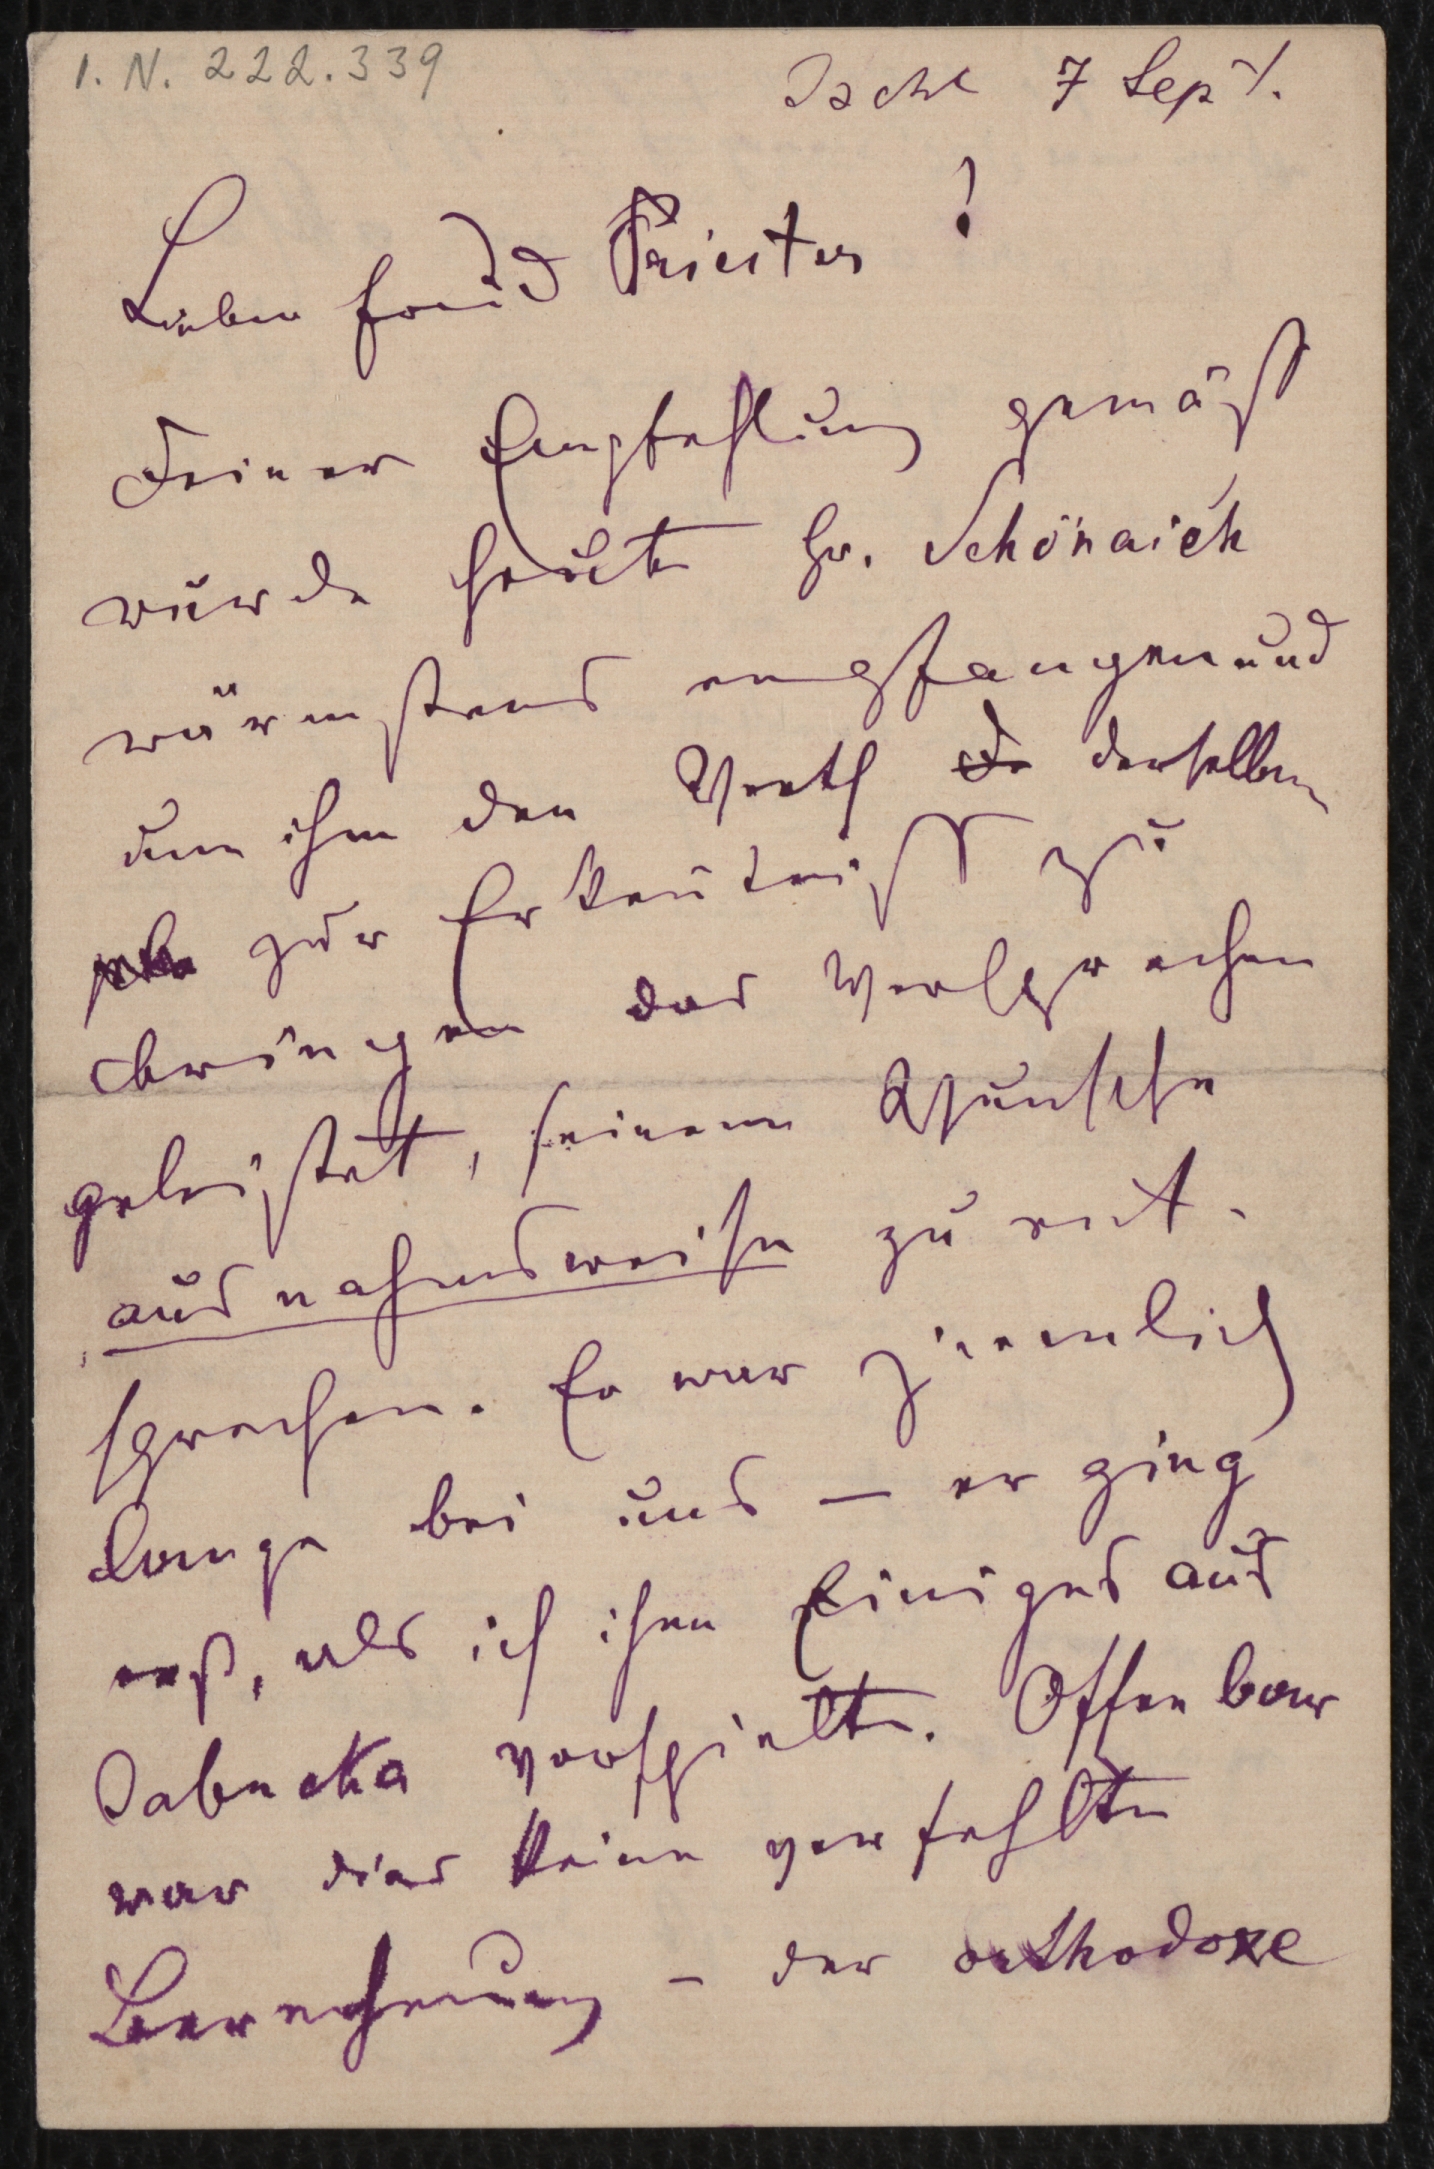 I. N. 222.339
Ischl 7 Sept.
Lieber Freund Priester!
Deiner Empfehlung gemäß
wurde heute Hr. Schönaich
wärmstens empfangen und
um ihm den Werth derselben
zur Erkentniß zu
bringen das Versprechen
geleistet, seinem Wunsche
ausnahmsweise zu ent-
sprechen. Er war ziemlich
lange bei uns – er ging
erst, als ich ihm Einiges aus
Jabucka vorspielte. Offenbar
war dies keine verfehlte
Berechnung – der orthodoxe